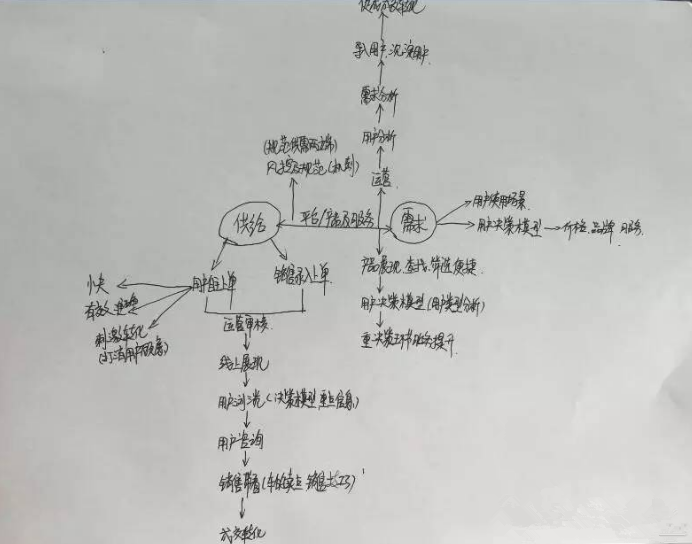 导入用户、沉淀用户
需求分析
用户分析
运营
(规范供需两端)
风控及规范(机制)
供给
平台/产品及服务
需求
用户使用场景
用户决策模型 价格、品牌、服务
用户自主上单
销售录入上单
快
有效
刺激转化
(打消用户顾虑)
运营审核
产品展现、查找、筛选便捷
用户决策模型(用户类型分析)
重决策环节
提升
线上展现
用户浏览(决策模型、重点信息)
用户咨询
销售带看(车的卖点、销售
成交转化